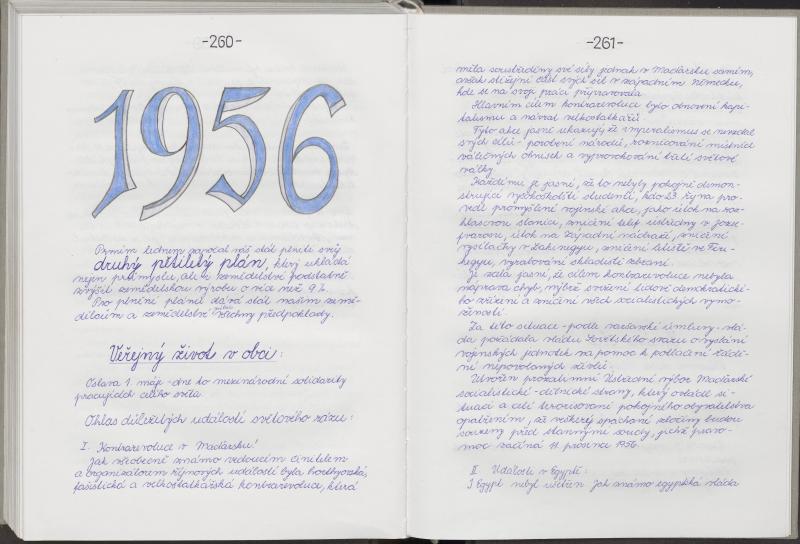 -260-
1956
Prvním lednem započal náš stát plniti svůj
druhý pětiletý plán, který ukládá
nejen průmyslu, ale i zemědělství podstatně
zvýšit zemědělskou výrobu o více než 9%.
Pro plnění plánu dává stát našim země-
dělcům a zemědělství všechny předpoklady.
Veřejný život v obci:
Oslava 1. máje - dne to mezinárodní solidarity
pracujících celého světa.
Ohlas důležitých událostí světového rázu:
I. Kontrarevoluce v Maďarsku!
Jak všeobecně známo vedoucím činitelem
a organizátorem říjnových událostí byla horthyovská,
fašistická a velkostatkářská kontrarevoluce, která
-261-
měla soustředěny své síly jednak v Maďarsku samém,
avšak stěžejní část svých sil v západním Německu,
kde se na svoji práci připravovala.
Hlavním cílem kontrarevoluce bylo obnovení kapi-
talismu a návrat velkostatkářů.
Tyto akce jasně ukazují, že imperialismus se nevzdal
svých cílů - porobení národů, rozněcování místních
válečných ohnisek a vyprovokování třetí světové
války.
Každému je jasné, že to nebyli pokojně demon-
strující vysokoškolští studenti, kdo 23. října pro-
vedli promyšlené vojenské akce, jako útok na roz-
hlasovou stanici, zničení telef. ústředny v Józse-
fvarosu, útok na Západní nádraží, zničení
letiště ve Feri-
hegyu, vyrabování skladiště zbraní.
Je zcela jasné, že cílem kontrarevoluce nebyla
náprava chyb, nýbrž svržení lidově demokratické-
ho zřízení a zničení všech socialistických vymo-
žeností.
Za této situace - podle varšavské smlouvy - vlá-
da požádala vládu Sovětského svazu o vyslání
vojenských jednotek na pomoc k potlačení řádě-
ní nepovolaných živlů.
Utvořen prozatimní Ústřední výbor Maďarské
socialistické - dělnické strany, který ovládl si-
tuaci a čelí terorisování pokojného obyvatelstva
opatřením, že veškeré spáchané zločiny budou
souzeny před stannými soudy, jichž pravo-
moc začíná 11. prosince 1956.
II. Události v Egyptě:
I Egypt nebyl ušetřen. Jak známo egyptská vláda